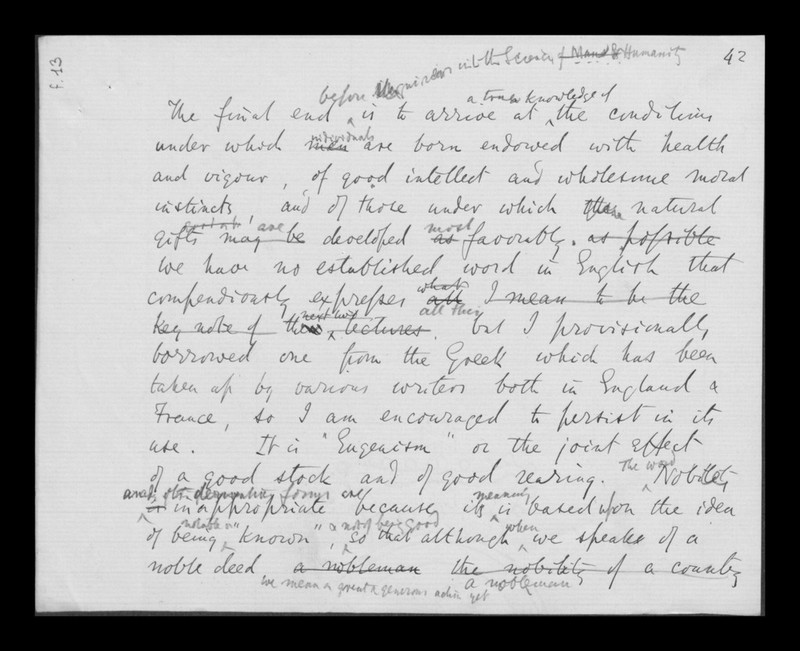 f.13
42
before inquiries into the Science of Man & Humanity
a true knowledge of
The final end is to arrive at the conditions
individuals
under which men are born endowed with health
and vigour, of good intellect and wholesome moral
instincts, and of those under which these natural
are most
gifts may be developed as favorably. as possible
We have no established word in English that
what
compendiously expresses all I mean to be the
next two all this
Key note of the lectures. but I provisionally
borrowed one from the Greek which has been
taken up by various writers both in England &
France, so I am encouraged to persist in its
use. It is "Eugenism" or the joint effect
of a good stock and of good rearing. The word Nobility
and its derivative forms are meaning
is inappropriate because its is based upon the idea
notable or & not of being good when
of being "known", so that although we speak of a
noble deed a nobleman the nobility of a country
we mean a great & generous action yet a nobleman